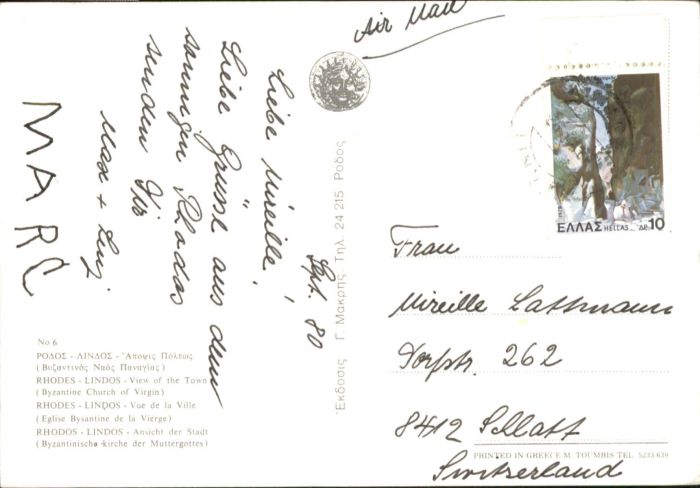 Air Mail
Sept. 80
Liebe Mireille!
Liebe Grüsse aus dem
sonnigen Rhodos
senden Dir
Max +
MARC
ΕΛΛΑΣ HELLAS ΔΡ. 10
Frau
Mireille Lattmann
Dorfstr. 262
8412
Switzerland
Ἔκδοσις Γ. Μακρῆς Τηλ. 24 215 Ροδος
No 6
ΡΟΔΟΣ - ΛΙΝΔΟΣ - Ἄποψις Πόλεως
(Βυζαντινὸς Ναὸς Παναγίας)
RHODES - LINDOS - View of the Town
(Byzantine Church of Virgin)
RHODES - LINDOS - Vue de la Ville
(Eglise Bysantine de la Vierge)
RHODOS - LINDOS - Ansicht der Stadt
(Byzantinische kirche der Muttergottes)
PRINTED IN GREECE M. TOUMBIS TEL. 5233 639